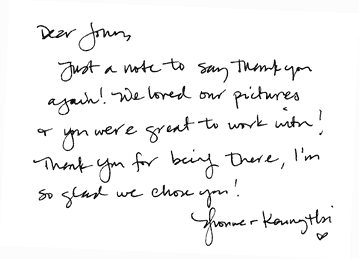 Dear Jonas,
Just a note to say thank you
again! We loved our pictures
+ you were great to work with!
Thank you for being there, I'm
so glad we chose you!
Yvonne +